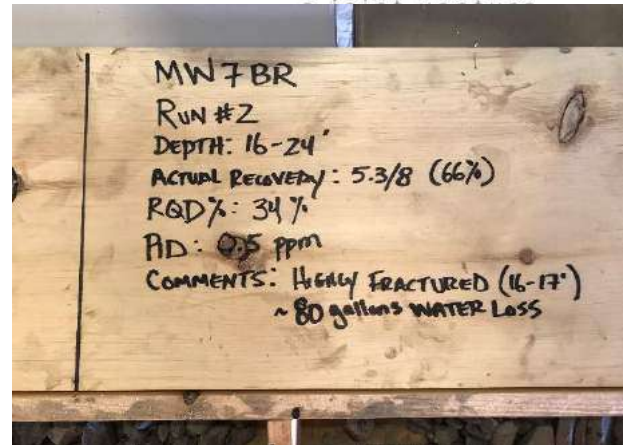 MW7BR
RUN #2
DEPTH: 16-24'
ACTUAL RECOVERY: 5.3/8 (66%)
RQD%: 34%
PID: 0.5 ppm
COMMENTS: HIGHLY FRACTURED (16-17')
~80 gallons WATER LOSS